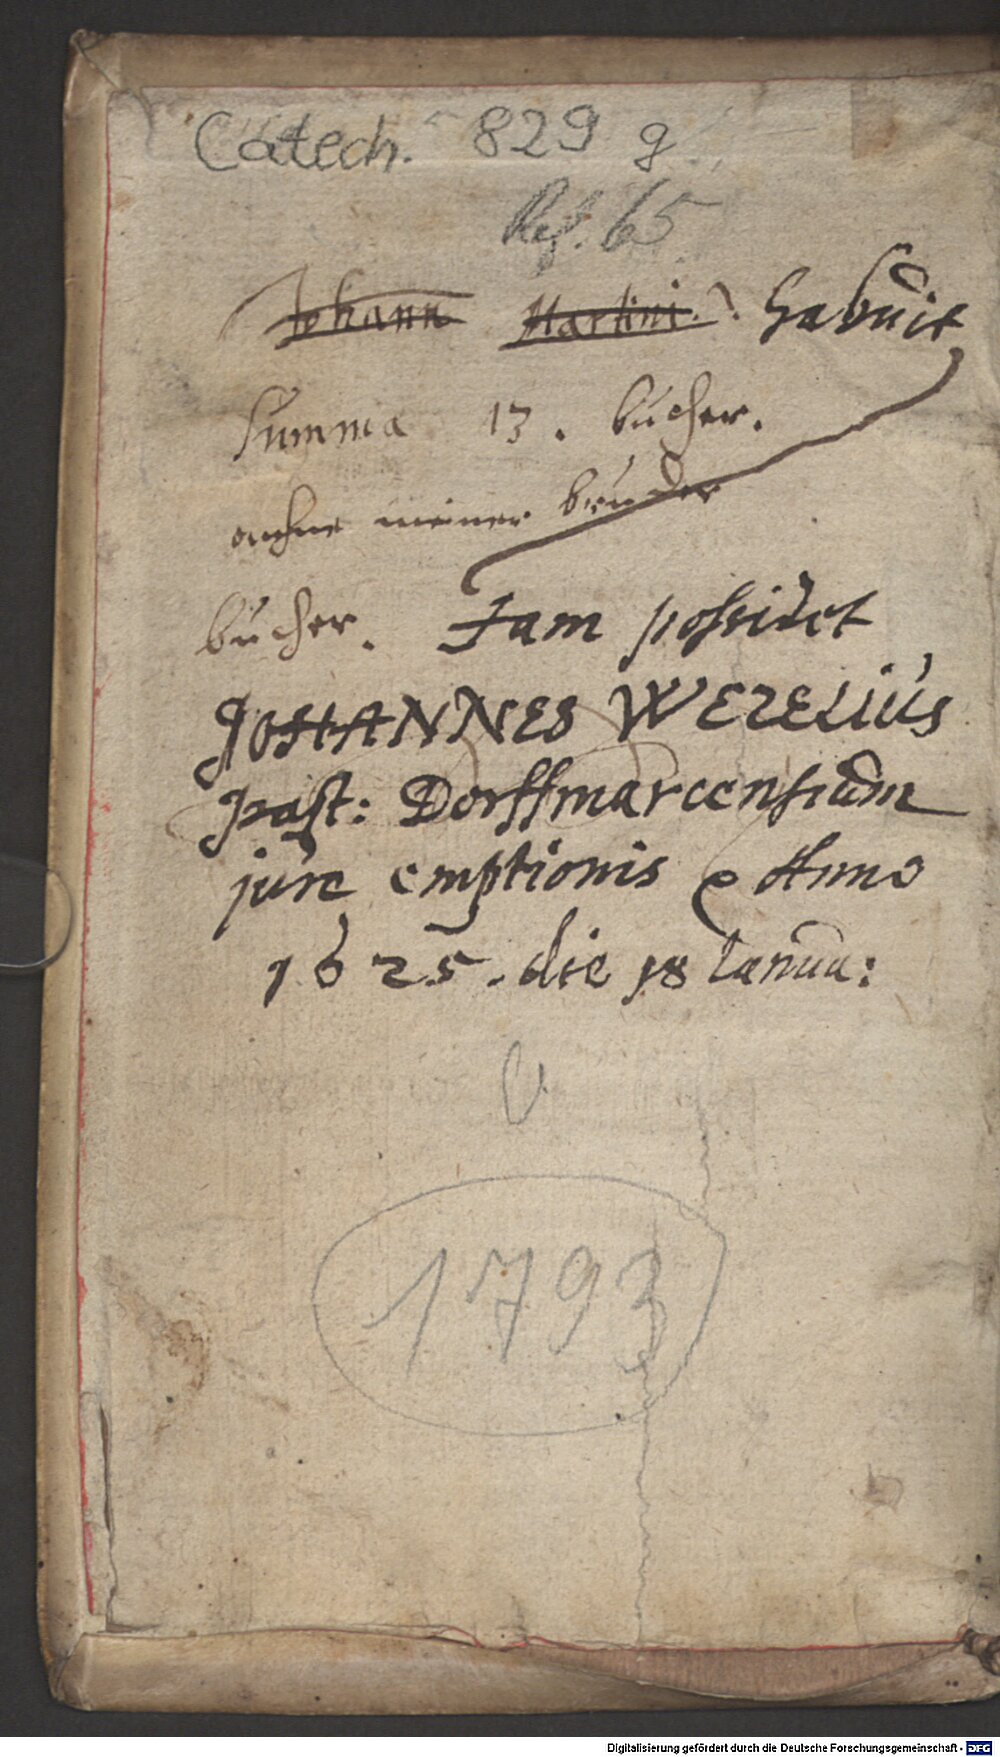 Catech. 829 g
Ref. 65
Johann Martini. habuit
Summa 13. bücher.
ouhne meiner bruder
bücher. Jam possidet
JOHANNES WEZELIUS
Past: Dorffmarcensium
jure emptionis Anno
1625. die 18 Ianua:
1793
Digitalisierung gefördert durch die Deutsche Forschungsgemeinschaft - DFG